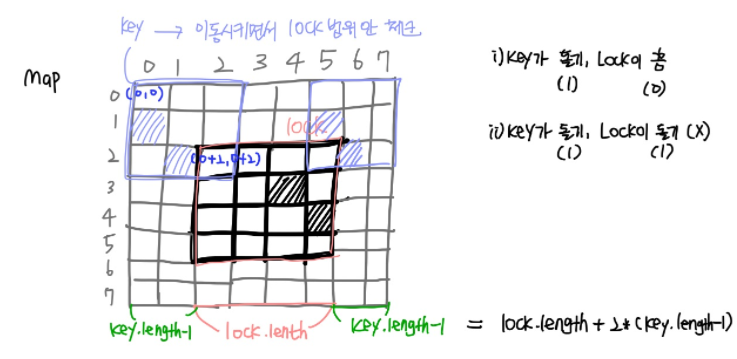 key → 이동시키면서 lock 범위만 체크
0 1 2 3 4 5 6 7
map
0
1
2
3
4
5
6
7
(0,0)
lock
(0+2,0+2)
key.length-1
lock.lenth
key.length-1
= lock.length + 2*(key.length-1)
i) key가 돌기, Lock이 홈
(1) (0)
ii) key가 돌기, Lock이 돌기 (X)
(1) (1)